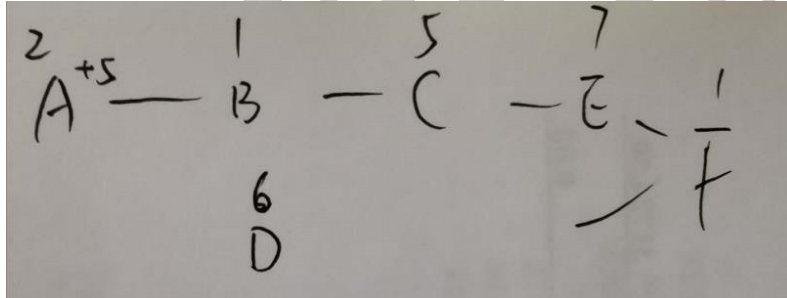 2 1 5 7
A+5 — B — C — E 1
6 F
D